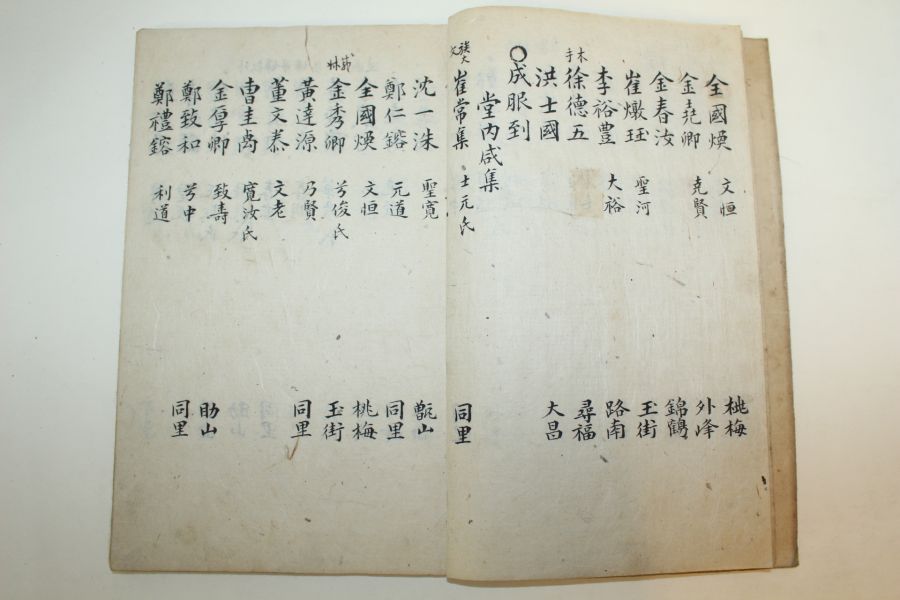 全國煥 文恒 桃梅
金堯卿 堯賢 外峰
金春汝 錦鶴
崔燉珏 聖河 玉街
李裕豊 大裕 路南
徐德五 尋福
洪士國 大昌
○成服到
堂內咸集
崔常集 士元氏 同里
沈一洙 聖寬 甑山
鄭仁鎔 元道 同里
全國煥 文恒 桃梅
金秀卿 兮俊氏 玉街
黃達源 乃賢 同里
董文泰 文老
曺圭禹 寬汝氏
金厚卿 致壽 助山
鄭致和 兮中 同里
鄭禮鎔 利道